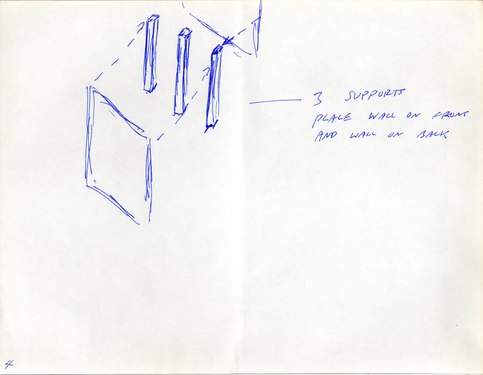 3 SUPPORTS
PLACE WALL ON FRONT
AND WALL ON BACK
4